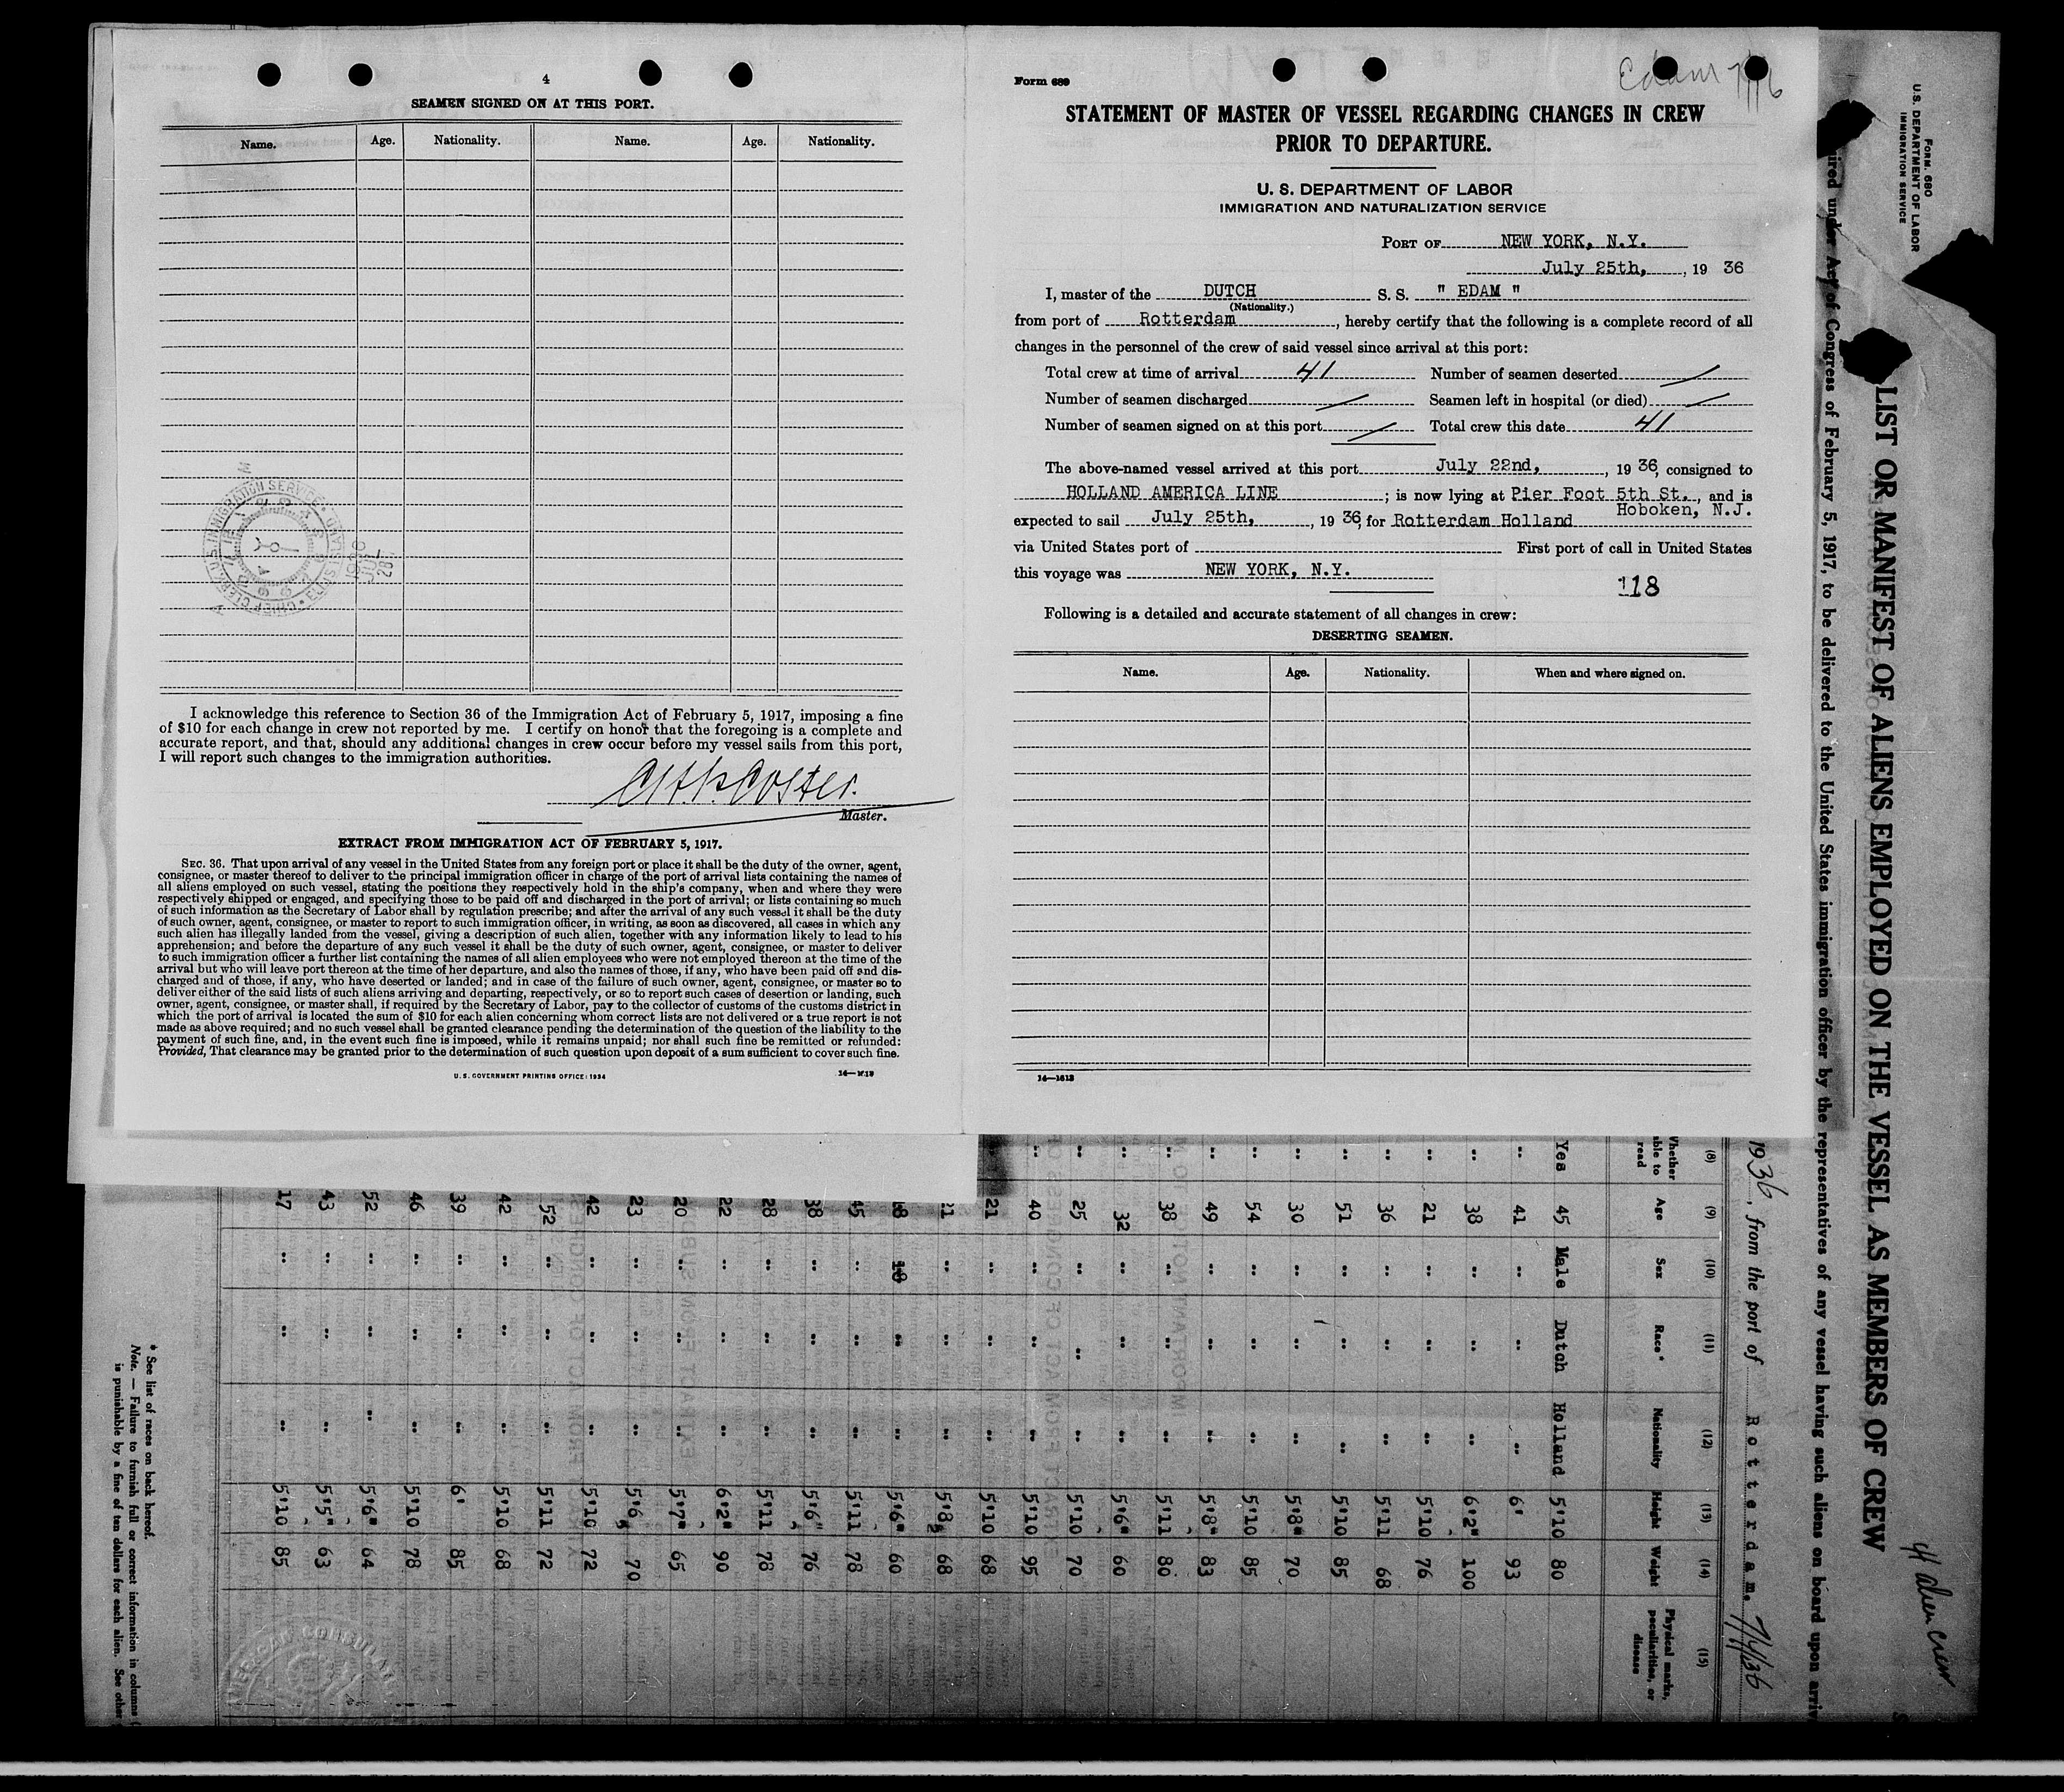 4
SEAMEN SIGNED ON AT THIS PORT.
Name. Age. Nationality. Name. Age. Nationality.
CHIEF CLERK, U.S. IMMIGRATION SERVICE
1936
JUL
28
I acknowledge this reference to Section 36 of the Immigration Act of February 5, 1917, imposing a fine
of $10 for each change in crew not reported by me. I certify on honor that the foregoing is a complete and
accurate report, and that, should any additional changes in crew occur before my vessel sails from this port,
I will report such changes to the immigration authorities.
Master.
EXTRACT FROM IMMIGRATION ACT OF FEBRUARY 5, 1917.
SEC. 36. That upon arrival of any vessel in the United States from any foreign port or place it shall be the duty of the owner, agent,
consignee, or master thereof to deliver to the principal immigration officer in charge of the port of arrival lists containing the names of
all aliens employed on such vessel, stating the positions they respectively hold in the ship's company, when and where they were
respectively shipped or engaged, and specifying those to be paid off and discharged in the port of arrival; or lists containing so much
of such information as the Secretary of Labor shall by regulation prescribe; and after the arrival of any such vessel it shall be the duty
of such owner, agent, consignee, or master to report to such immigration officer, in writing, as soon as discovered, all cases in which any
such alien has illegally landed from the vessel, giving a description of such alien, together with any information likely to lead to his
apprehension; and before the departure of any such vessel it shall be the duty of such owner, agent, consignee, or master to deliver
to such immigration officer a further list containing the names of all alien employees who were not employed thereon at the time of the
arrival but who will leave port thereon at the time of her departure, and also the names of those, if any, who have been paid off and dis-
charged and of those, if any, who have deserted or landed; and in case of the failure of such owner, agent, consignee, or master so to
deliver either of the said lists of such aliens arriving and departing, respectively, or so to report such cases of desertion or landing, such
owner, agent, consignee, or master shall, if required by the Secretary of Labor, pay to the collector of customs of the customs district in
which the port of arrival is located the sum of $10 for each alien concerning whom correct lists are not delivered or a true report is not
made as above required; and no such vessel shall be granted clearance pending the determination of the question of the liability to the
payment of such fine, and, in the event such fine is imposed, while it remains unpaid; nor shall such fine be remitted or refunded:
Provided, That clearance may be granted prior to the determination of such question upon deposit of a sum sufficient to cover such fine.
U. S. GOVERNMENT PRINTING OFFICE: 1934
Form 689
Edam
STATEMENT OF MASTER OF VESSEL REGARDING CHANGES IN CREW
PRIOR TO DEPARTURE.
U. S. DEPARTMENT OF LABOR
IMMIGRATION AND NATURALIZATION SERVICE
PORT OF NEW YORK, N.Y.
July 25th, , 19 36
I, master of the DUTCH S. S. " EDAM "
(Nationality.)
from port of Rotterdam , hereby certify that the following is a complete record of all
changes in the personnel of the crew of said vessel since arrival at this port:
Total crew at time of arrival 41 Number of seamen deserted /
Number of seamen discharged / Seamen left in hospital (or died) /
Number of seamen signed on at this port / Total crew this date 41
The above-named vessel arrived at this port July 22nd, , 19 36, consigned to
HOLLAND AMERICA LINE ; is now lying at Pier Foot 5th St. , and is
Hoboken, N.J.
expected to sail July 25th, , 19 36, for Rotterdam Holland
via United States port of First port of call in United States
this voyage was NEW YORK, N.Y.
118
Following is a detailed and accurate statement of all changes in crew:
DESERTING SEAMEN.
Name. Age. Nationality. When and where signed on.
14—1613
FORM 680
U. S. DEPARTMENT OF LABOR
IMMIGRATION SERVICE
LIST OR MANIFEST OF ALIENS EMPLOYED ON THE VESSEL AS MEMBERS OF CREW
41 alien crew
under Act of Congress of February 5, 1917, to be delivered to the United States immigration officer by the representatives of any vessel having such aliens on board upon
1936, from the port of Rotterdam.
(8) (9) (10) (11) (12) (13) (14) (15)
Whether able to read Age Sex Race* Nationality Height Weight Physical marks, peculiarities, or disease
Yes 45 Male Dutch Holland 5'10 80
" 41 " " " 6' 93
" 38 " " " 6'2" 100
" 21 " " " 5'10 76
" 36 " " " 5'11 68
" 51 " " " 5'10 85
" 30 " " " 5'8" 70
" 54 " " " 5'10 85
" 49 " " " 5'8" 83
" 38 " " " 5'11 80
" 32 " " " 5'6" 60
" 25 " " " 5'10 70
" 40 " " " 5'10 95
21 " " " 5'10 68
21 " " " 5'8 68
18 " " 5'6" 60
45 " " " 5'11 78
38 " " " 5'6" 76
28 " " " 5'11 78
22 " " " 6'2" 90
20 " " " 5'7" 65
23 " " " 5'6 70
42 " " " 5'10 72
52 " " " 5'11 72
42 " " " 5'10 68
39 " " " 6' 85
46 " " " 5'10 78
52 " " " 5'6" 64
43 " " " 5'5" 63
17 " " " 5'10 85
AMERICAN CONSULA
* See list of races on back hereof.
Note. — Failure to furnish full or correct information in columns (
is punishable by a fine of ten dollars for each alien. See other